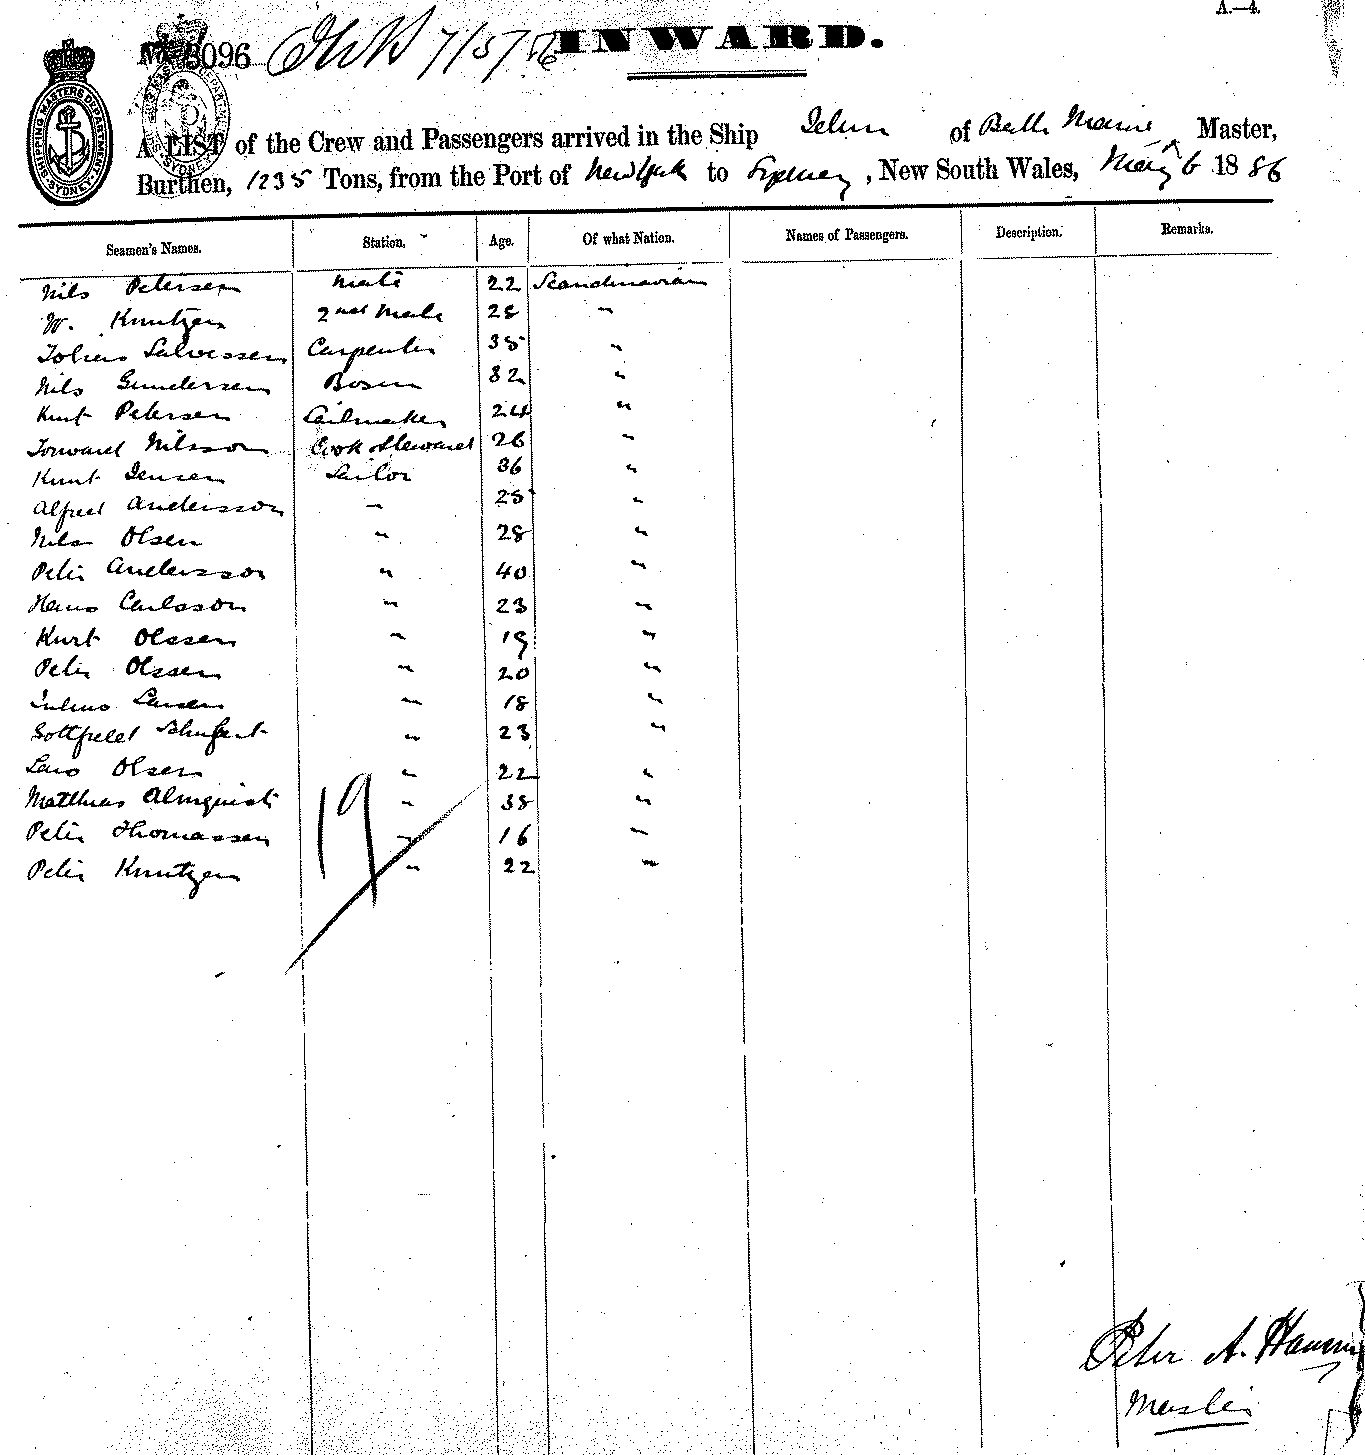 A.—4.
No. 8096 7/5/86 INWARD.
SHIPPING MASTERS DEPARTMENT SYDNEY
A LIST of the Crew and Passengers arrived in the Ship of Bath Maine Master,
Burthen, 1235 Tons, from the Port of New York to Sydney, New South Wales, May 6 1886
Seamen's Names. Station. Age. Of what Nation. Names of Passengers. Description. Remarks.
Nils Petersen Mate 22 Scandinavian
W. Knutzen 2nd Mate 28 "
Tobias Salvessen Carpenter 35 "
Nils Gundersen Bosun 32 "
Knut Petersen Sailmaker 24 "
Torward Nilsson Cook Steward 26 "
Knut Jensen Sailor 36 "
Alfred Andersson " 25 "
Nils Olsen " 28 "
Peter Andersson " 40 "
Hans Carlsson " 23 "
Kurt Olssen " 19 "
Peter Olssen " 20 "
Julius Larsen " 18 "
Gottfried " 23 "
Lars Olsen " 22 "
Matthias Almquist " 38 "
Peter Thomassen " 16 "
Peter Knutzen " 22 "
19
Peter A. Hansen
Master